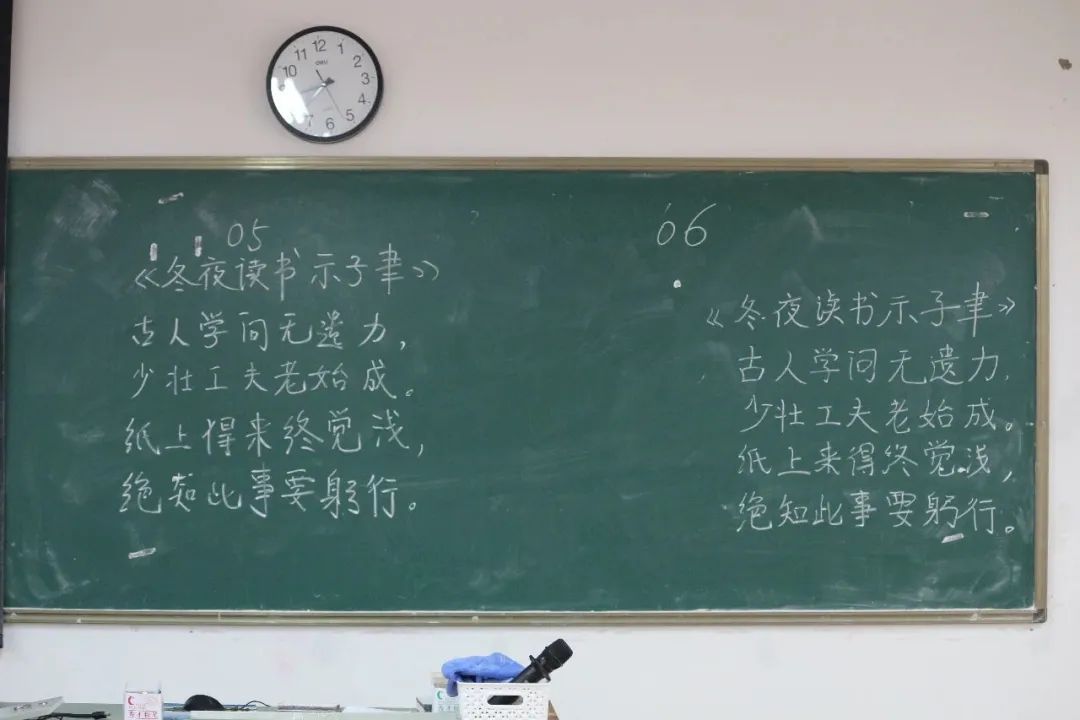 11 12 1
10 2
3
4
7 6 5
05
《冬夜读书示子聿》
古人学问无遗力，
少壮工夫老始成。
纸上得来终觉浅，
绝知此事要躬行。
06
《冬夜读书示子聿》
古人学问无遗力，
少壮工夫老始成。
纸上来得终觉浅，
绝知此事要躬行。